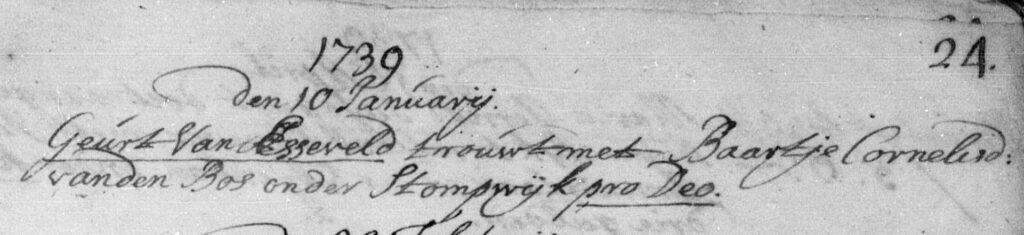 1739
24.
den 10 Januarij.
Geurt Van Esseveld trouwt met Baartje Cornelisd:
vanden Bos onder Stompwijk pro Deo.